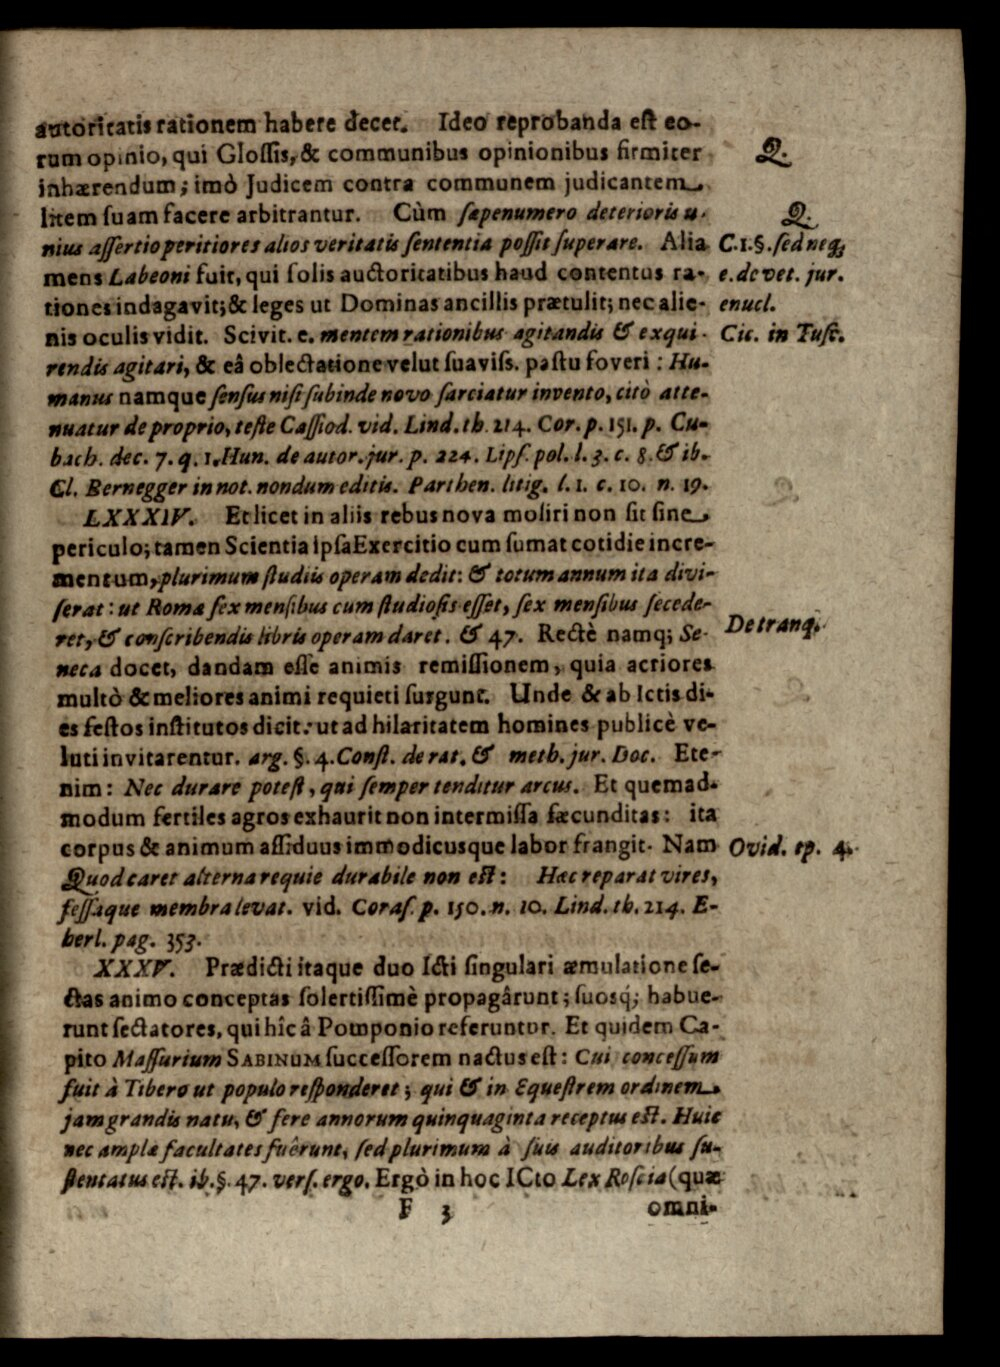 autoritatis rationem habere decet. Ideo reprobanda eſt eo-
rum opinio, qui Gloſſis, & communibus opinionibus firmiter
Q.
inhærendum; imò Judicem contra communem judicantem
litem ſuam facere arbitrantur. Cùm ſæpenumero deterioris u-
Q.
nius aſſertio peritiores alios veritatis ſententia poſſit ſuperare. Alia
C. 1. §. ſed neq;
mens Labeoni fuit, qui ſolis auctoritatibus haud contentus ra-
e. de vet. jur.
tiones indagavit; & leges ut Dominas ancillis prætulit; nec alie-
enucl.
nis oculis vidit. Scivit. e. mentem rationibus agitandis & exqui-
Cic. in Tuſc.
rendis agitari, & eâ oblectatione velut ſuaviſs. paſtu foveri: Hu-
manus namque ſenſus niſi ſubinde novo ſarciatur invento, citò atte-
nuatur de proprio, teſte Caſſiod. vid. Lind. th. 214. Cor. p. 151. p. Cu-
bach. dec. 7. q. 1. Hun. de autor. jur. p. 224. Lipſ. pol. l. 3. c. 8. & ib.
Cl. Bernegger in not. nondum editis. Parthen. litig. l. 1. c. 10. n. 19.
LXXXIV. Et licet in aliis rebus nova moliri non ſit ſine
periculo; tamen Scientia ipſa Exercitio cum ſumat cotidie incre-
mentum, plurimum ſtudiis operam dedit: & totum annum ita divi-
ſerat: ut Romæ ſex menſibus cum ſtudioſis eſſet, ſex menſibus ſecede-
ret, & conſcribendis libris operam daret. & 47. Rectè namq; Se-
De tranq.
neca docet, dandam eſſe animis remiſſionem, quia acriores
multò & meliores animi requieti ſurgunt. Unde & ab Ictis di-
es feſtos inſtitutos dicit: ut ad hilaritatem homines publicè ve-
luti invitarentur. arg. §. 4. Conſt. de rat. & meth. jur. Doc. Ete-
nim: Nec durare poteſt, qui ſemper tenditur arcus. Et quemad-
modum fertiles agros exhaurit non intermiſſa fæcunditas: ita
corpus & animum aſſiduus immodicusque labor frangit. Nam
Ovid. ep. 4.
Quod caret alterna requie durabile non eſt: Hæc reparat vires,
feſſaque membra levat. vid. Coraſ. p. 150. n. 10. Lind. th. 214. E-
berl. pag. 353.
XXXV. Prædicti itaque duo Icti ſingulari æmulatione ſe-
ctas animo conceptas ſolertiſſimè propagârunt; ſuosq; habue-
runt ſectatores, qui hîc â Pomponio referuntur. Et quidem Ca-
pito Maſſurium SABINUM ſucceſſorem nactus eſt: Cui conceſſum
fuit à Tibero ut populo reſponderet; qui & in Equeſtrem ordinem
jam grandis natu, & fere annorum quinquaginta receptus eſt. Huic
nec amplæ facultates fuêrunt, ſed plurimum à ſuis auditoribus ſu-
ſtentatus eſt. ib. §. 47. verſ. ergo. Ergò in hoc ICto Lex Roſcia (quæ
F 3 omni-